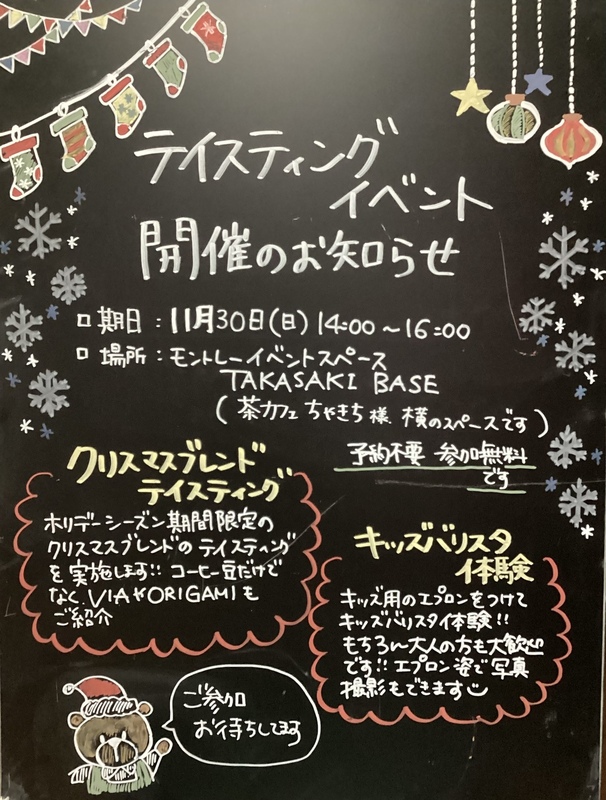 テイスティング
イベント
開催のお知らせ
□ 期日 : 11月30日(日) 14:00 ~ 16:00
□ 場所 : モントレーイベントスペース
TAKASAKI BASE
( 茶カフェ ちゃきち 様 横のスペースです )
予約不要 参加無料
です
クリスマスブレンド
テイスティング
ホリデーシーズン期間限定の
クリスマスブレンドの テイスティング
を実施します!! コーヒー豆だけで
なく VIAやORIGAMIも
ご紹介
キッズバリスタ
体験
キッズ用のエプロンをつけて
キッズバリスタイ体験!!
もちろん大人の方も大歓迎
です!! エプロン姿で写真
撮影もできます
ご参加
お待ちしてます